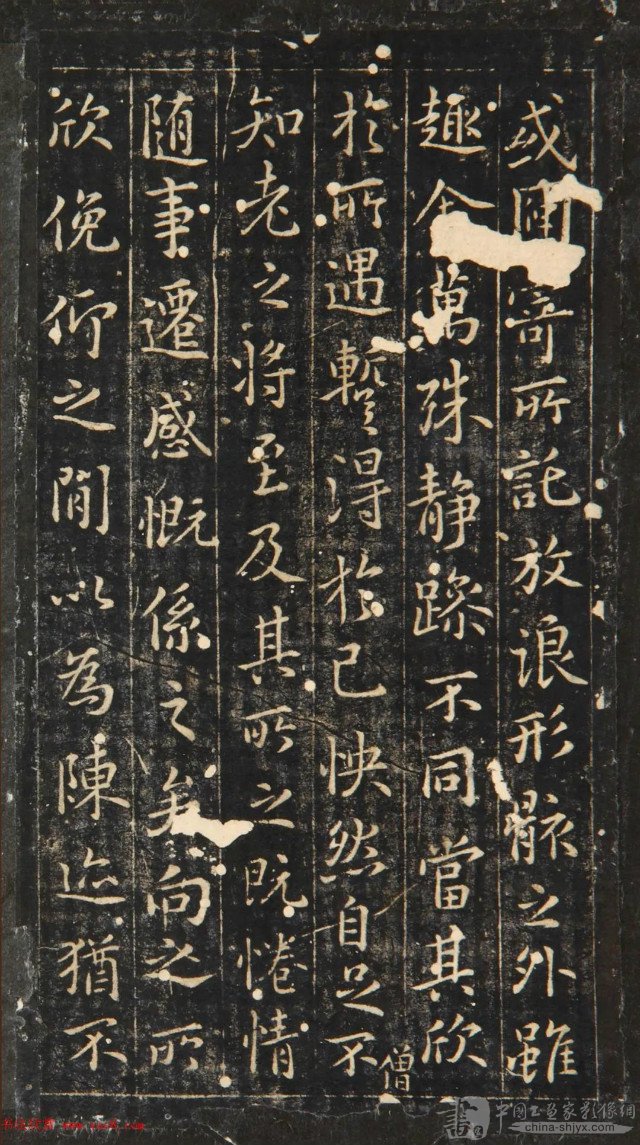 或因寄所託放浪形骸之外雖
趣萬殊静躁不同當其欣
於所遇暫得於己怏然自足不
僧
知老之将至及其所之既惓情
随事遷感慨係之矣向之所
欣俛仰之間以為陳迹猶不
china-shjyx.com